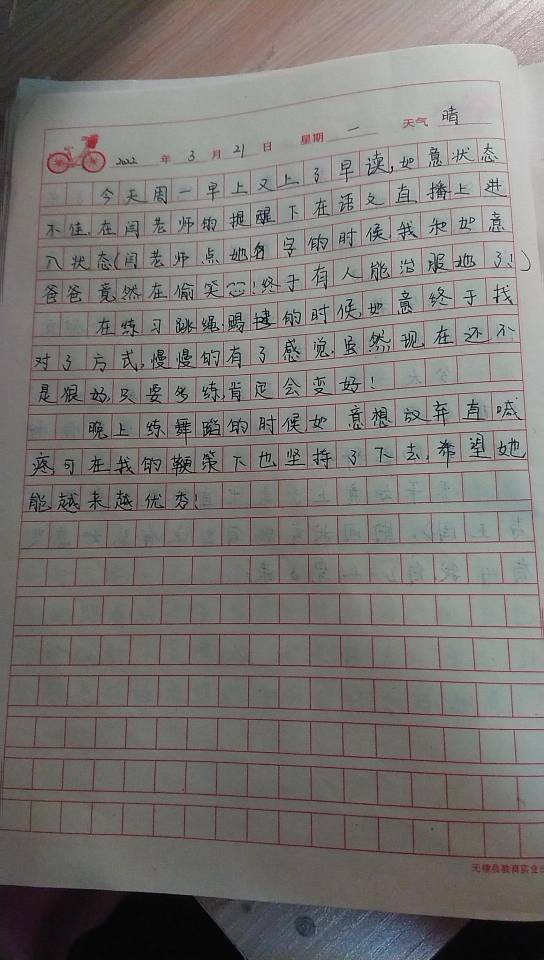 2022 年 3 月 21 日 星期 一 天气 晴
今天周一早上又上了早读,如意状态
不佳.在闫老师的提醒下在语文直播上进
入状态(闫老师点她名字的时候,我和如意
爸爸竟然在偷笑!终于有人能治服她了!)
在练习跳绳踢毽的时候,如意终于找
对了方式,慢慢的有了感觉.虽然现在还不
是很好,只要多练,肯定会变好!
晚上练舞蹈的时候如意想放弃直喊
疼可在我的鞭策下也坚持了下去.希望她
能越来越优秀!
无棣县教育实业